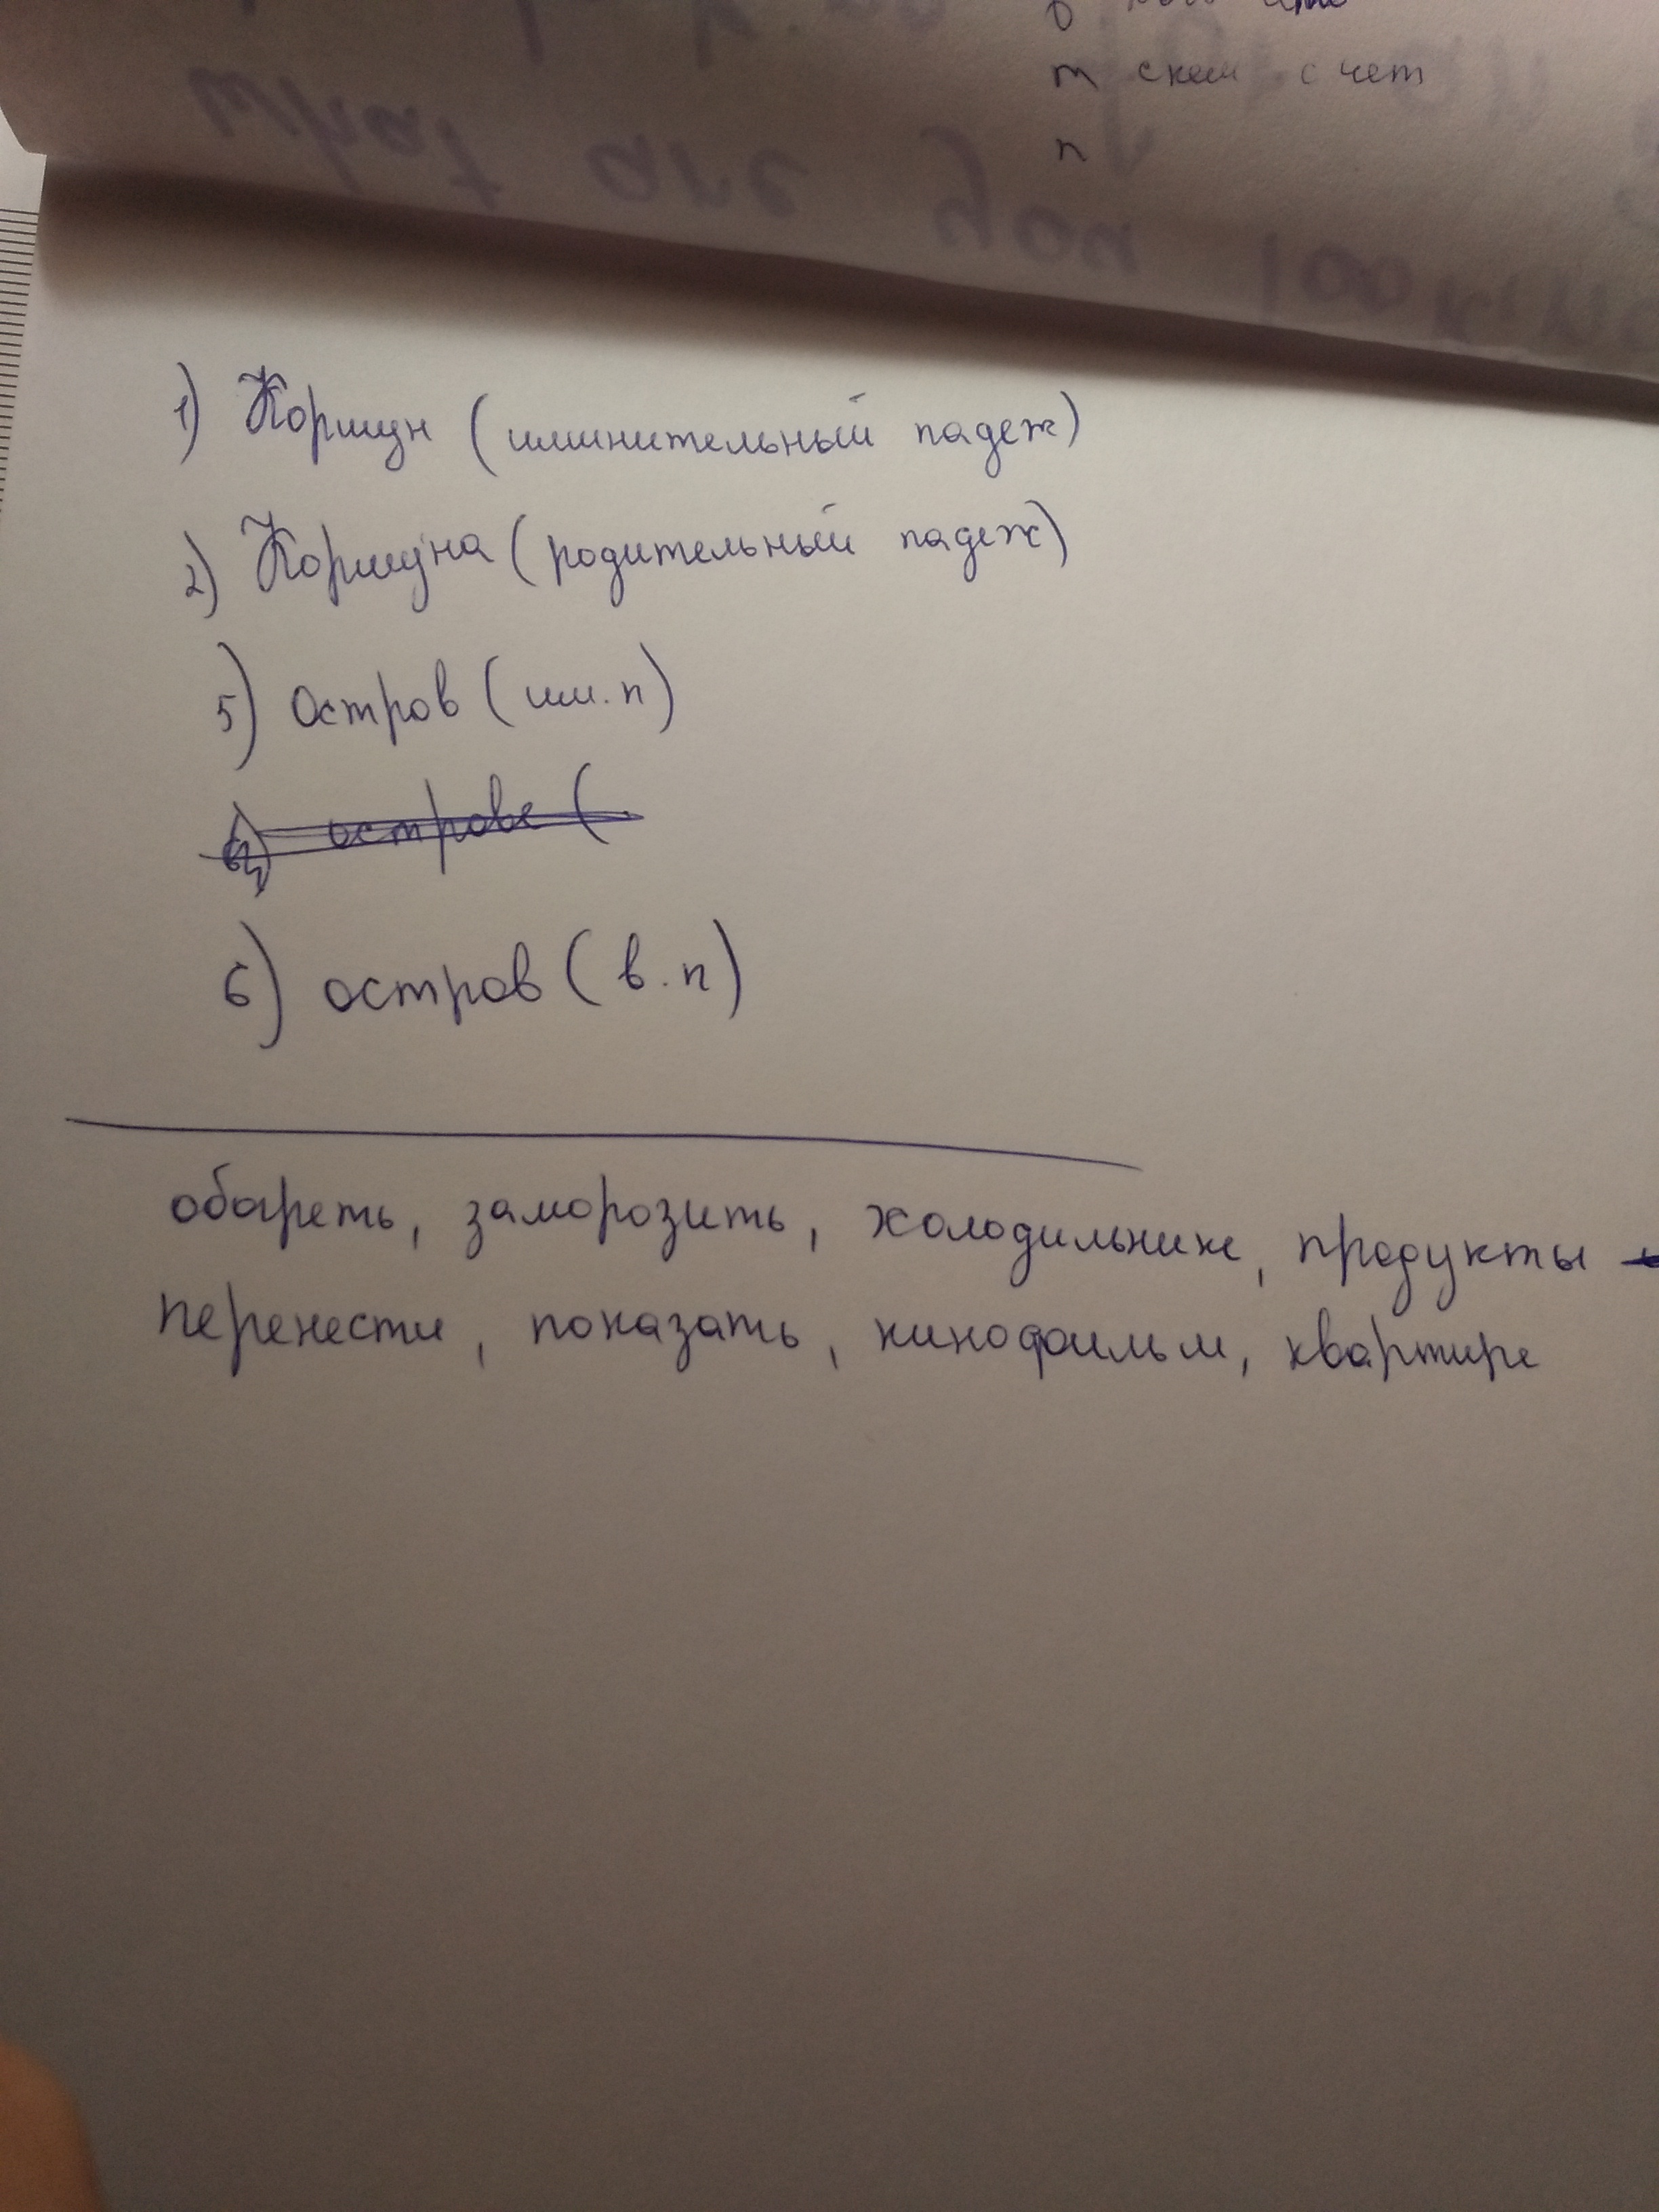 т с кем с чем
п
what are you looking
1) Коршун (именительный падеж)
2) Коршуна (родительный падеж)
5) Остров (им. п)
острове (
6) остров (в. п)
заморозить, холодильник, продукты
перенести, показать, кинофильм, квартире